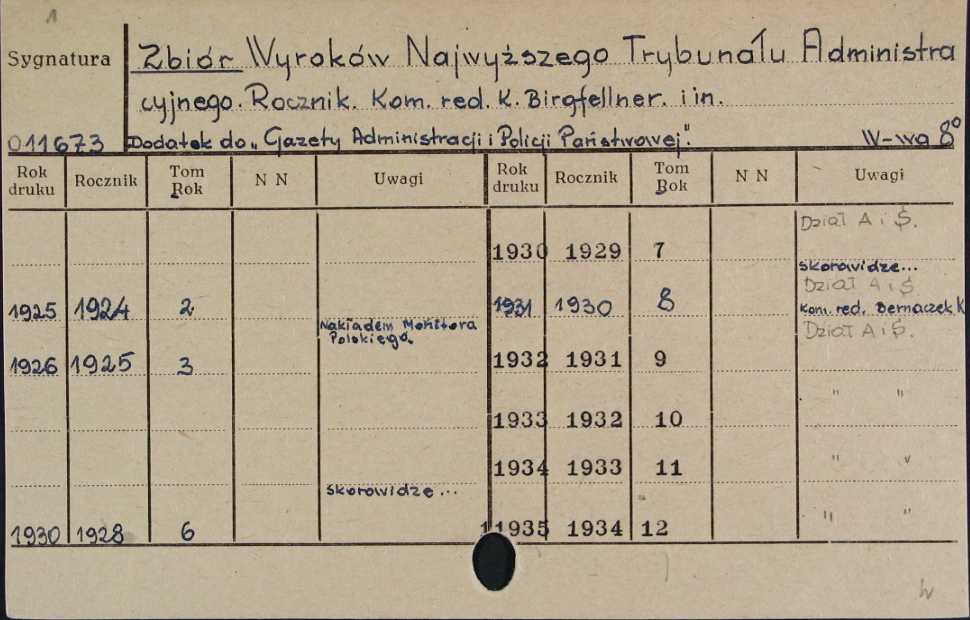 1
Sygnatura
Zbiór Wyroków Najwyższego Trybunału Administra
cyjnego. Rocznik. Kom. red. K. Birgfellner. i in.
011673 Dodatek do „Gazety Administracji i Policji Państwowej". W-wa 8°
Rok druku Rocznik Tom Rok N N Uwagi Rok druku Rocznik Tom Rok N N Uwagi
Dział A i Ś.
1930 1929 7
skorowidze...
Dział A i Ś
1925 1924 2 1931 1930 8 Kom. red. Bernaczek K
Nakładem Monitora
Polskiego.
Dział A i Ś.
1926 1925 3 1932 1931 9
1933 1932 10 " "
1934 1933 11 " "
skorowidze...
1930 1928 6 1935 1934 12 " "